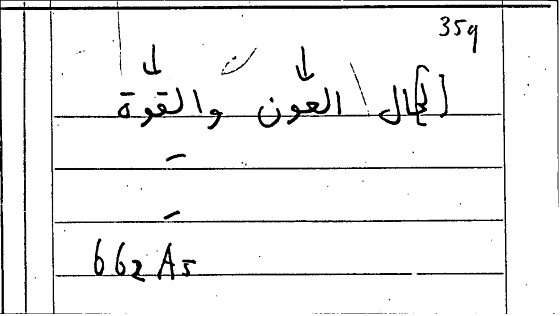 359
العون والقوة
662 A5